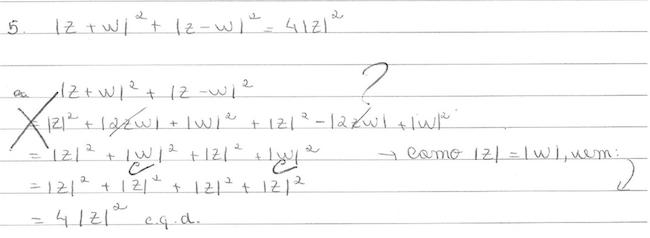 5. |z + w|² + |z - w|² = 4|z|²
|z + w|² + |z - w|² ?
= |z|² + |2zw| + |w|² + |z|² - |2zw| + |w|²
= |z|² + |w|² + |z|² + |w|² → como |z| = |w|, vem:
= |z|² + |z|² + |z|² + |z|²
= 4|z|² c.q.d.